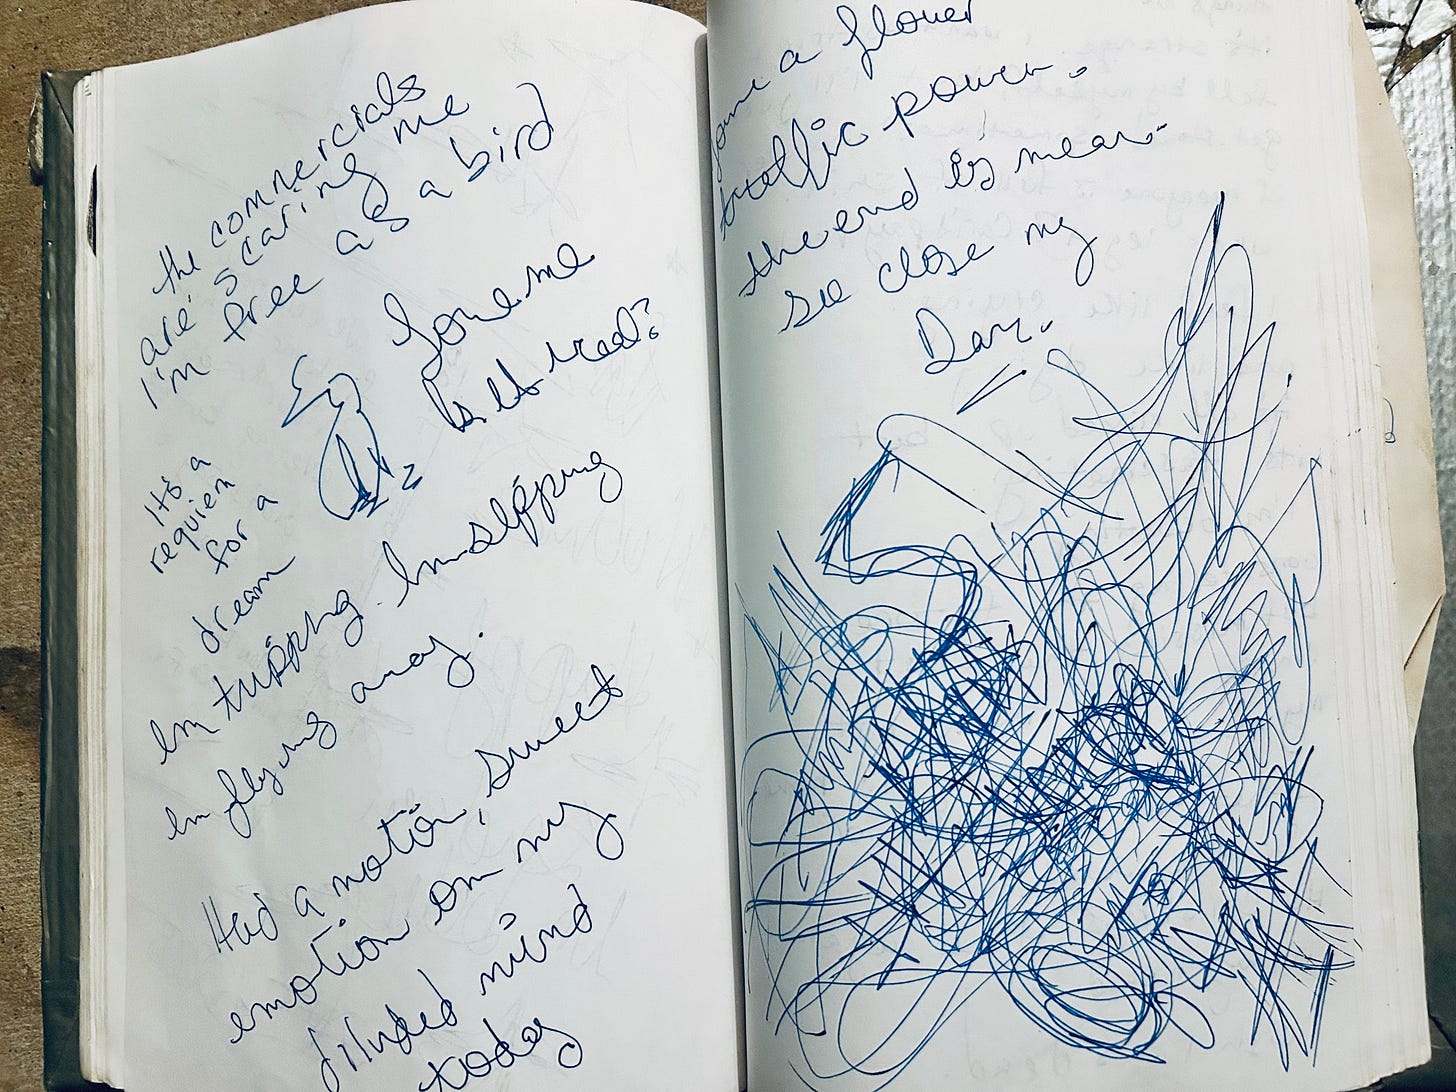 the commercials
are scaring me
I'm free as a bird
Love me
Is it real?
It's a
requiem
for a
dream
Im tripping. Im slipping
Im flying away.
Had a motion, sweet
emotion on my
diluded mind
today
a flower
power.
the end is near.
so close my
Day.